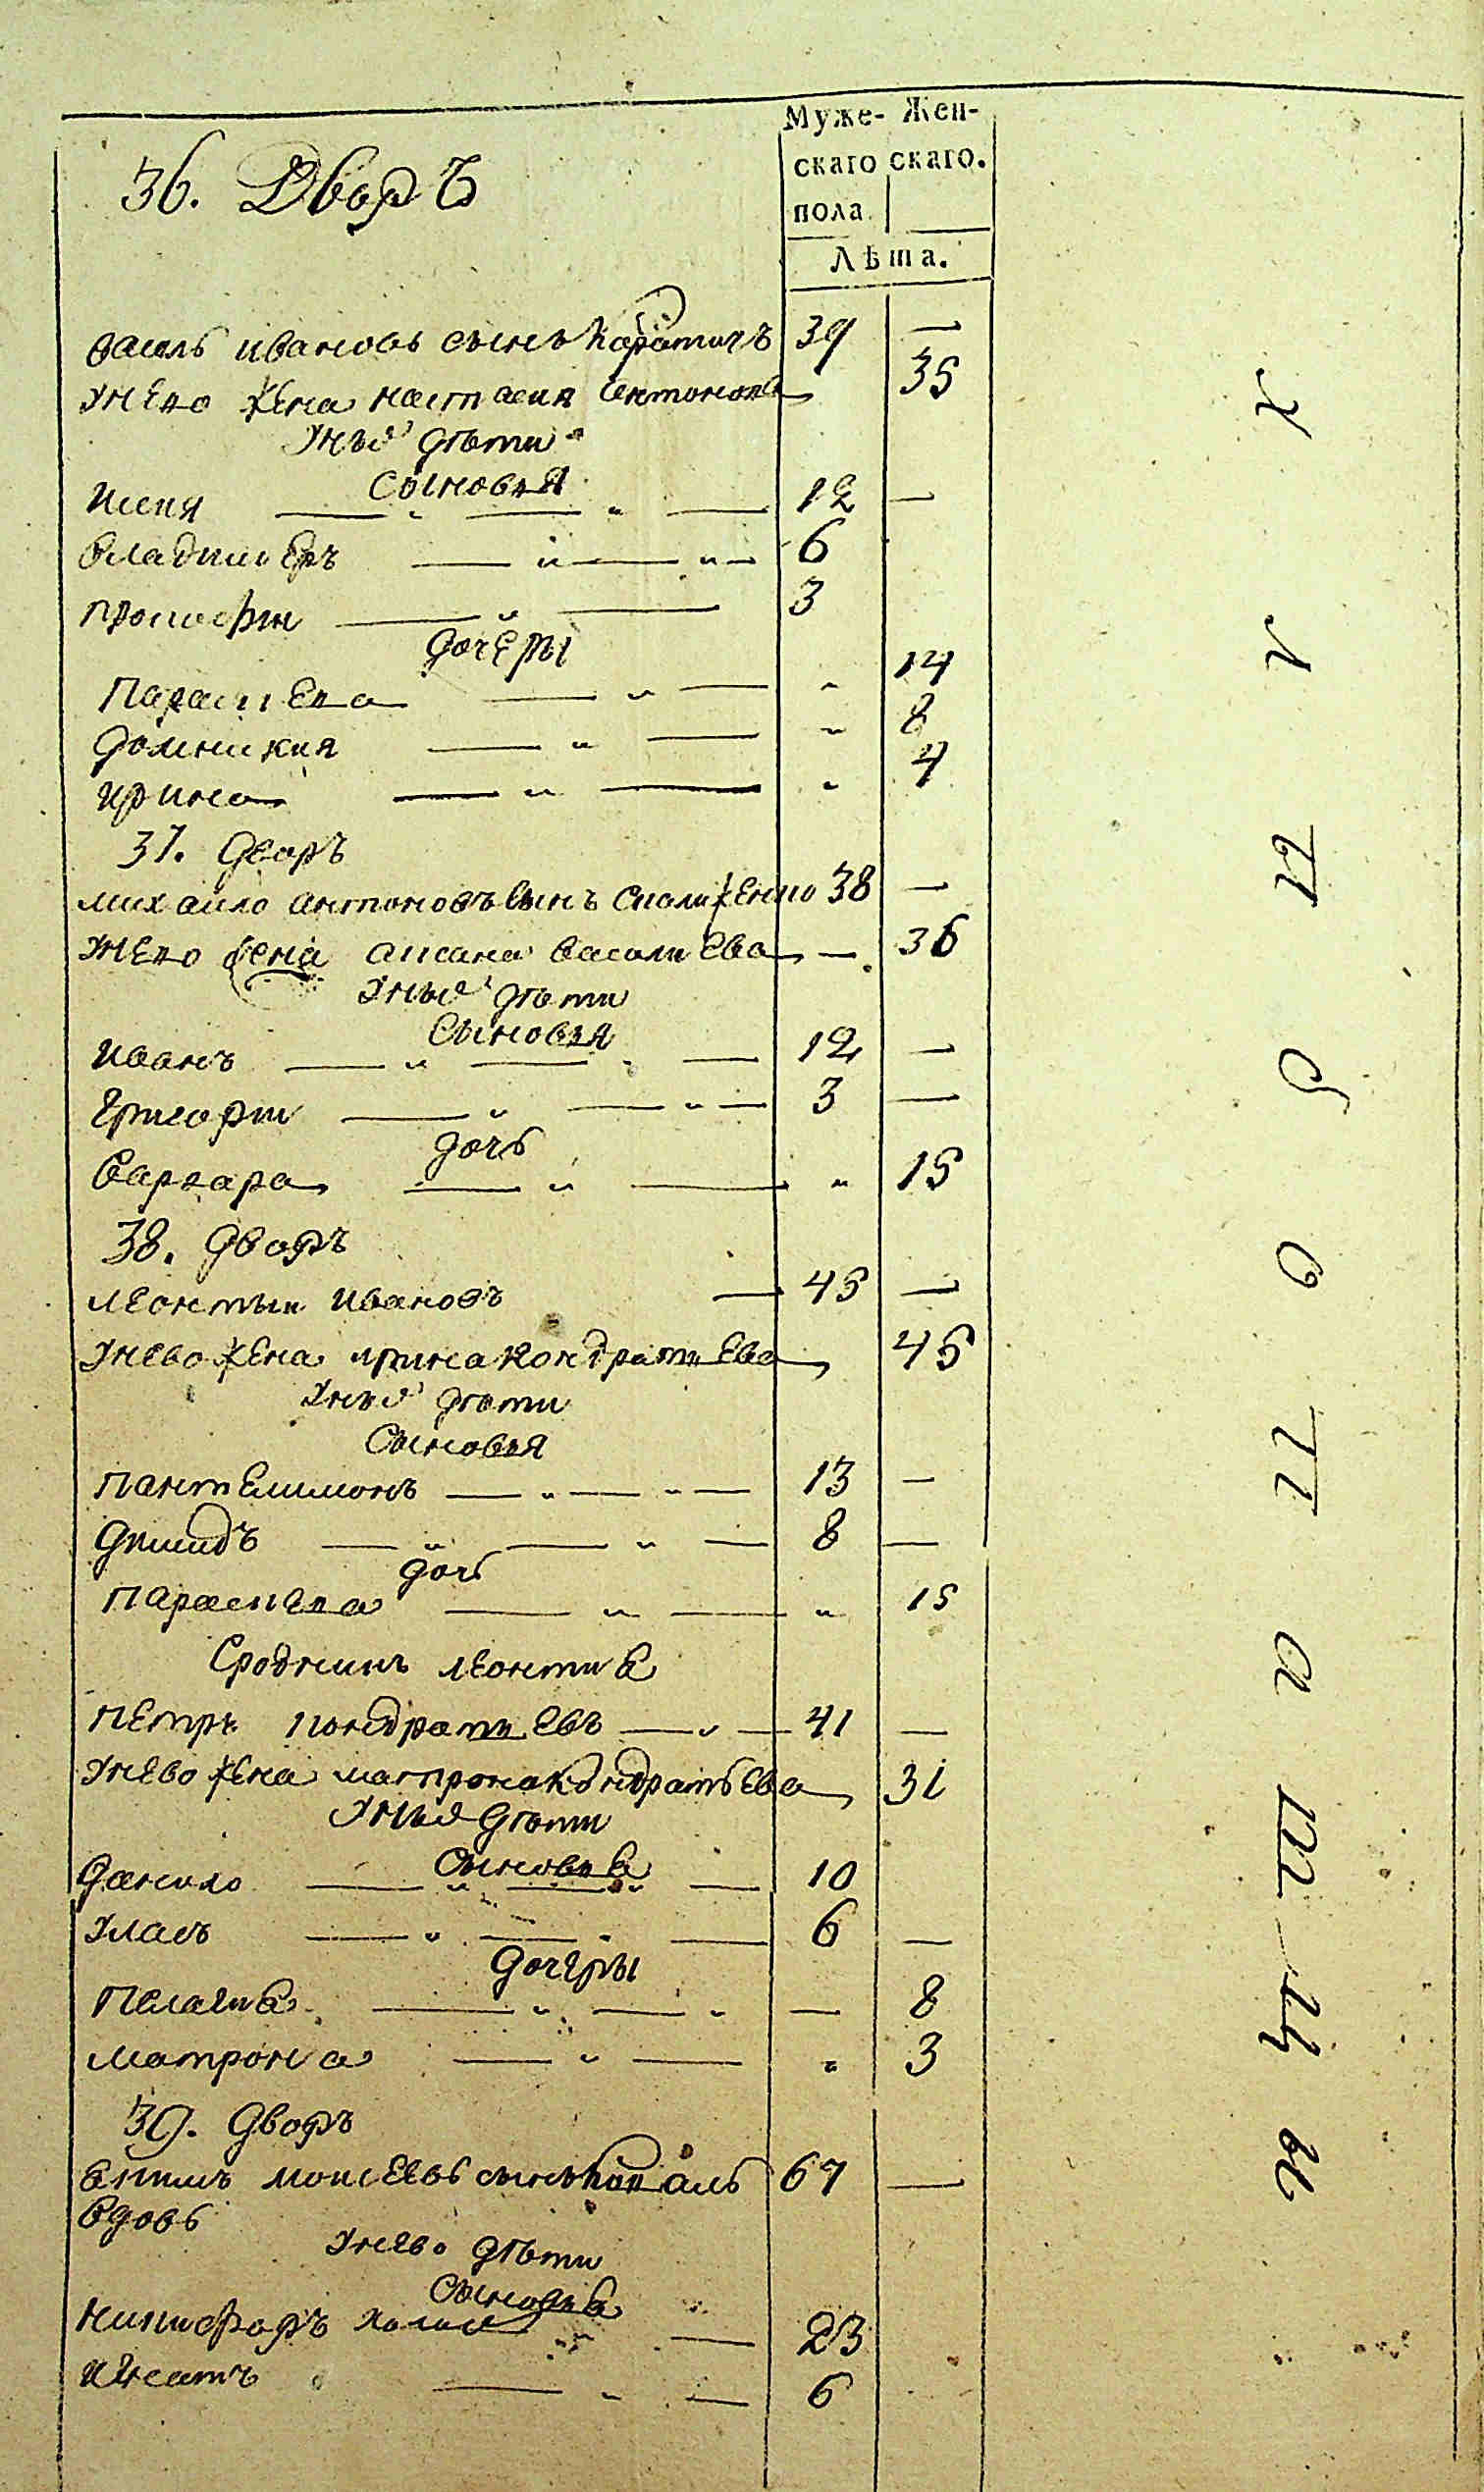 Муже- Жен-
скаго скаго.
пола
Лѣта.
36. Дворъ
василь ивановъ сынъ 39 —
унево жена настасия антонова 35
унихъ дѣти
Сыновья
Илия 12 —
владимеръ 6
прокофии 3
дочеры
Параскева 14
домникия 8
ирина 4
37. дворъ
михаило антоновъ сынъ 38 —
унево жена васильева — 36
унихъ дѣти
Сыновья
иванъ 12 —
григории 3 —
дочь
варвара 15
38. дворъ
леонтыи ивановъ — 45 —
унево жена ирина кондратиева 45
унихъ дѣти
Сыновья
пантелимонъ 13 —
8 —
дочь
параскева 15
Сродникъ леонтия
петръ кондратиевъ 41 —
унево жена матрона кондратьева 31
унихъ дѣти
Сыновья
данило 10
уласъ 6 —
дочеры
Пелагия — 8
матрона 3
39. дворъ
моисеевъ сынъ коваль 67 —
вдовъ
унево дѣти
Сыновья
никифоръ холостъ 23
игнатъ 6